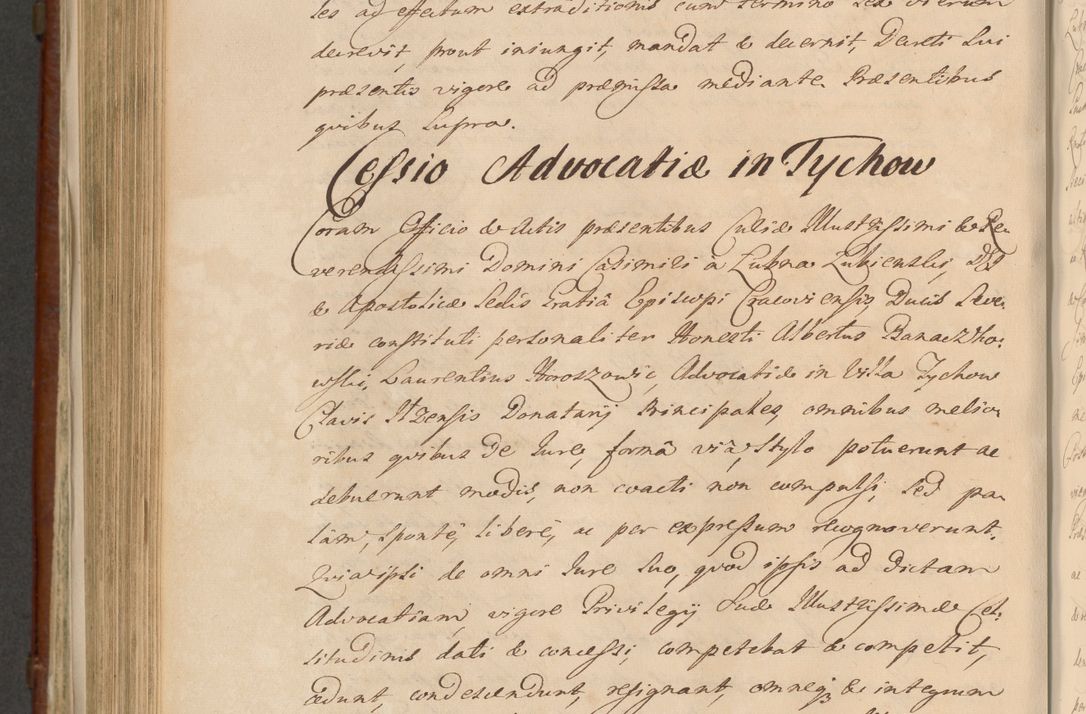 les ad effectum extraditionis cum termino sex dierum
decrevit, prout iniungit, mandat & decernit, Decreti sui
præsentis vigore ad præmissa mediante. Præsentibus
quibus supra.
Cessio Advocatiæ in Tychow
Coram Officio & Actis præsentibus Curiæ Illustrissimi & Re-
verendissimi Domini Casimiri à Lubna Lubienski, DEI
& Apostolicæ Sedis Gratiâ Episcopi Cracoviensis, Ducis Seve-
riæ constituti personaliter Honesti Albertus Banaczko-
wski, Laurentius Horoszowic, Advocatiæ in Villa Tychow
Clavis Ilzensis Donatarij Principales, omnibus melio-
ribus quibus de Jure, formâ viâ, stylo potuerunt ac
debuerunt modis, non coacti non compulsi, sed pa-
làm, spontè, liberè, ac per expressum recognoverunt.
Quia ipsi de omni Jure suo, quod ipsis ad dictam
Advocatiam, vigore Privilegij suæ Illustrissimæ Cel-
situdinis dati & concessi, competebat & competit,
cedunt, condescendunt, resignant, omneq; & integrum